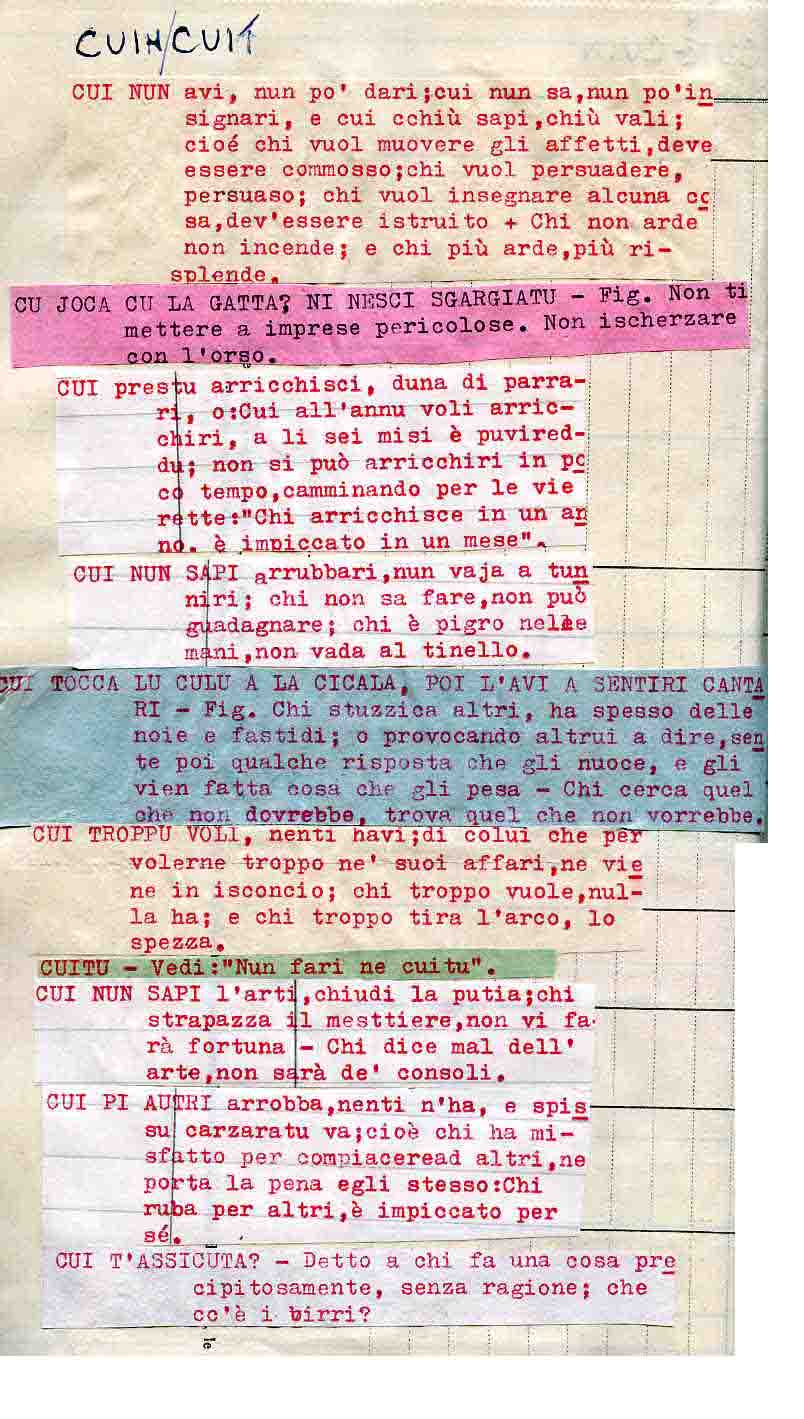 CUIH/CUIT
CUI NUN avi, nun po' dari;cui nun sa,nun po'in
signari, e cui cchiù sapi,chiù vali;
cioé chi vuol muovere gli affetti,deve
essere commosso;chi vuol persuadere,
persuaso; chi vuol insegnare alcuna co
sa,dev'essere istruito + Chi non arde
non incende; e chi più arde,più ri-
splende.
CU JOCA CU LA GATTA? NI NESCI SGARGIATU - Fig. Non ti
mettere a imprese pericolose. Non ischerzare
con l'orso.
CUI prestu arricchisci, duna di parra-
ri, o:Cui all'annu voli arric-
chiri, a li sei misi è puvired-
du; non si può arricchiri in po
co tempo,camminando per le vie
rette:"Chi arricchisce in un an
no. è impiccato in un mese".
CUI NUN SAPI arrubbari,nun vaja a tun
niri; chi non sa fare,non può
guadagnare; chi è pigro nelle
mani,non vada al tinello.
CUI TOCCA LU CULU A LA CICALA, POI L'AVI A SENTIRI CANTA
RI - Fig. Chi stuzzica altri, ha spesso delle
noie e fastidi; o provocando altrui a dire,sen
te poi qualche risposta che gli nuoce, e gli
vien fatta cosa che gli pesa - Chi cerca quel
che non dovrebbe, trova quel che non vorrebbe.
CUI TROPPU VOLI, nenti havi;di colui che per
volerne troppo ne' suoi affari,ne vie
ne in isconcio; chi troppo vuole,nul-
la ha; e chi troppo tira l'arco, lo
spezza.
CUITU - Vedi:"Nun fari ne cuitu".
CUI NUN SAPI l'arti,chiudi la putia;chi
strapazza il mesttiere,non vi fa-
rà fortuna - Chi dice mal dell'
arte,non sarà de' consoli.
CUI PI AUTRI arrobba,nenti n'ha, e spis
su carzaratu va;cioè chi ha mi-
sfatto per compiaceread altri,ne
porta la pena egli stesso:Chi
ruba per altri,è impiccato per
sé.
CUI T'ASSICUTA? - Detto a chi fa una cosa pre
cipitosamente, senza ragione; che
cc'è i birri?